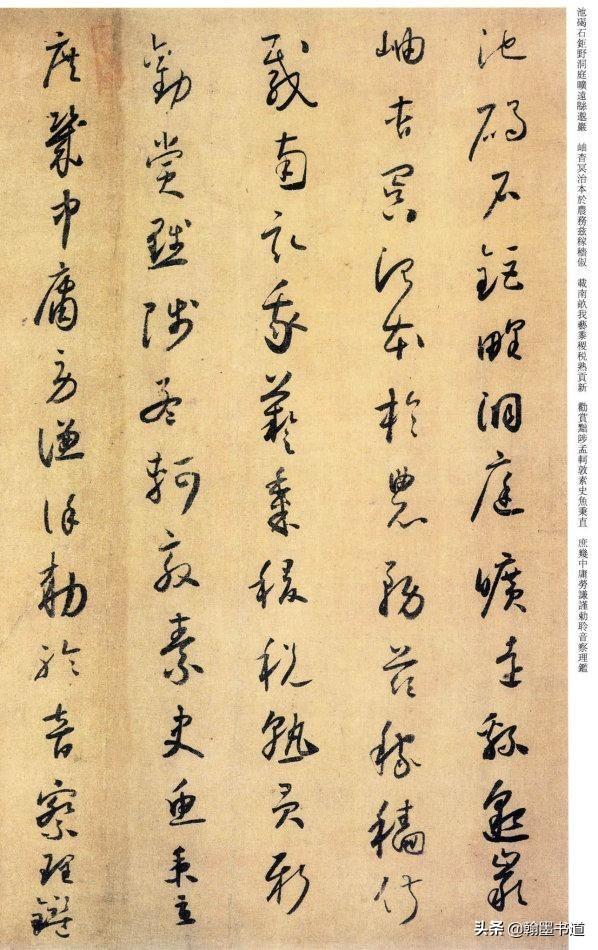 池碣石鉅野洞庭曠遠緜邈巖 岫杳冥治本於農務兹稼穡俶 載南畝我藝黍稷税熟貢新 勸賞黜陟孟軻敦素史魚秉直 庶幾中庸勞謙謹勅聆音察理鑑
池碣石鉅野洞庭曠遠緜邈巖
岫杳冥治本於農務兹稼穡俶
載南畝我藝黍稷税熟貢新
勸賞黜陟孟軻敦素史魚秉直
庶幾中庸勞謙謹勅聆音察理鑑
头条 @翰墨书道